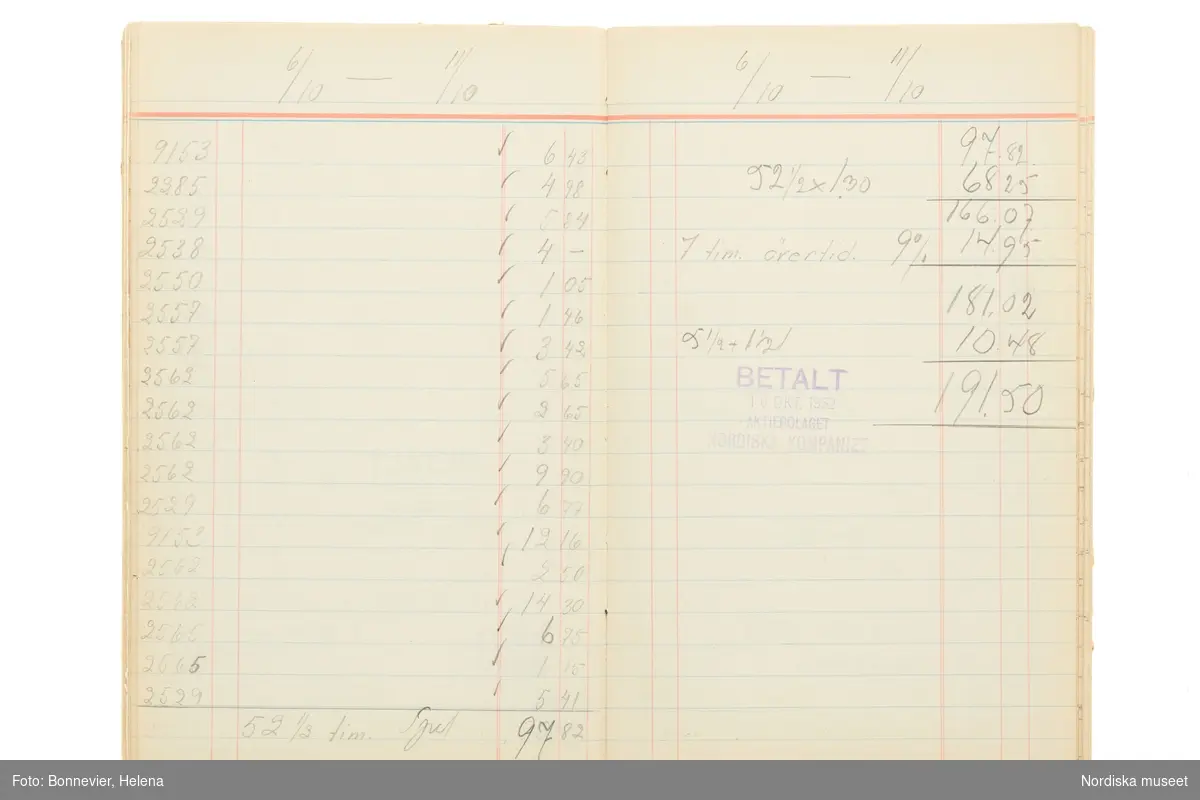 6/10 — 11/10
9153 6 43
2385 4 98
2529 5 84
2538 4 –
2550 1 05
2557 1 46
2557 3 42
2562 5 65
2562 2 65
2562 3 40
2562 9 90
2529 6 77
9153 12 16
2562 2 50
2562 14 30
2565 6 75
2565 1 15
2529 5 41
52 1/2 tim. 97 82
6/10 — 11/10
97.82
52 1/2 x 1.30 68 25
166.07
7 tim. övertid. 9% 14.95
181.02
5 1/2 + 1 1/2 10 48
191.50
BETALT
OKT. 1952
AKTIEBOLAGET
NORDISKA KOMPANIET
Foto: Bonnevier, Helena
Nordiska museet